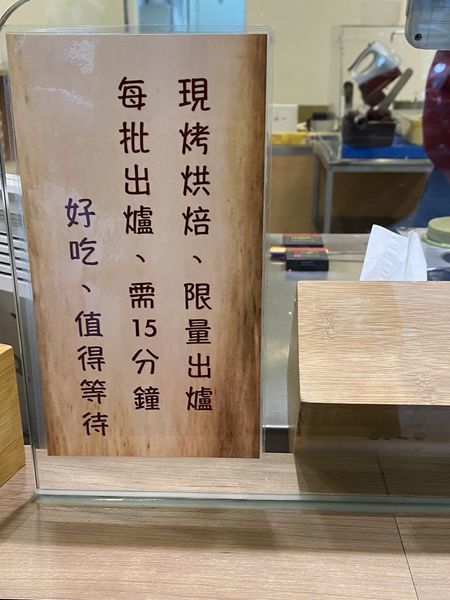 現烤烘焙、限量出爐
每批出爐、需15分鐘
好吃、值得等待